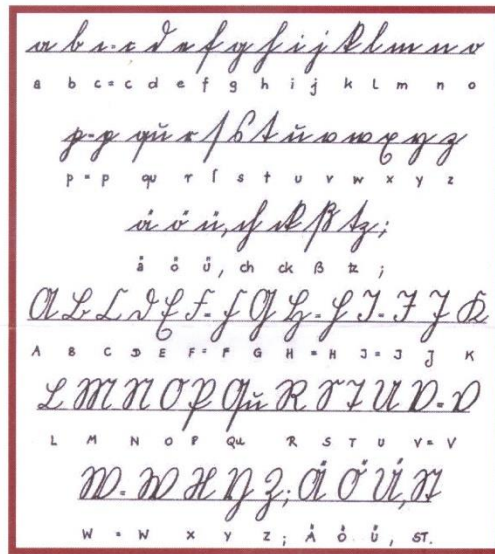 a b c = c d e f g h i j k l m n o
a b c = c d e f g h i j k l m n o
p = p qu r ſ s t u v w x y z
p = p qu r ſ s t u v w x y z
ä ö ü, ch ck ß tz ;
ä ö ü, ch ck ß tz ;
A B C D E F = F G H = H I = I J K
A B C D E F = F G H = H I = I J K
L M N O P Qu R S T U V = V
L M N O P Qu R S T U V = V
W = W X Y Z ; Ä Ö Ü, St
W = W X Y Z ; Ä Ö Ü, ST.